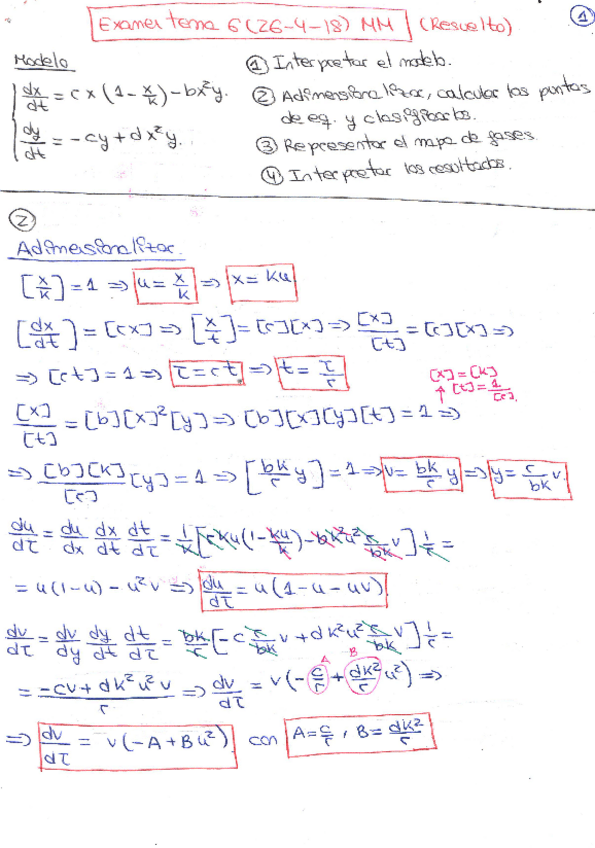 Examen tema 6 (26-4-18) MM (Resuelto)
1
Modelo
dx/dt = r x (1 - x/k) - bx²y.
dy/dt = -cy + dx²y.
① Interpretar el modelo.
② Adimensionalizar, calcular los puntos
de eq. y clasificarlos.
③ Representar el mapa de fases.
④ Interpretar los resultados.
②
Adimensionalizar.
[x/k] = 1 ⇒ u = x/k ⇒ x = ku
[dx/dt] = [rx] ⇒ [x/t] = [r][x] ⇒ [x]/[t] = [r][x] ⇒
⇒ [rt] = 1 ⇒ τ = rt ⇒ t = τ/r
[x] = [k]
↑ [t] = 1/[r].
[x]/[t] = [b][x]²[y] ⇒ [b][x][y][t] = 1 ⇒
⇒ [b][k]/[r] [y] = 1 ⇒ [bk/r y] = 1 ⇒ v = bk/r y ⇒ y = r/bk v.
du/dτ = du/dx dx/dt dt/dτ = 1/k [rku(1 - ku/k) - bk²u² r/bk v] 1/r =
= u(1-u) - u²v ⇒ du/dτ = u(1-u-uv)
dv/dτ = dv/dy dy/dt dt/dτ = bk/r [-c r/bk v + dk²u² r/bk v] 1/r =
= -cv + dk²u²v / r ⇒ dv/dτ = v(-c/r + dk²/r u²) ⇒
A B
⇒ dv/dτ = v(-A + Bu²) con A = c/r, B = dk²/r